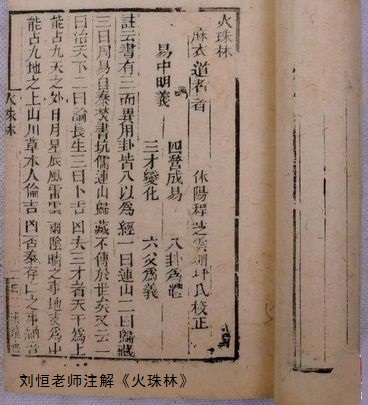 火珠林
麻衣道者著 休陽程芝雲調坪氏校正
四營成易 八卦為體
易中明義
三才變化 六爻為義
註云書有三而異用卦皆八以為經一曰連山二曰歸藏
三曰周易自秦焚書坑儒連山歸藏不傳於世矣又云一
曰治天下二曰論長生三曰卜吉凶夫三才者天為上
能占九天之外日月星辰風雷雲雨陰晴之事地次為中
能占九地之上山川草木人倫吉凶否泰存亡之事
火珠林
刘恒老师注解《火珠林》